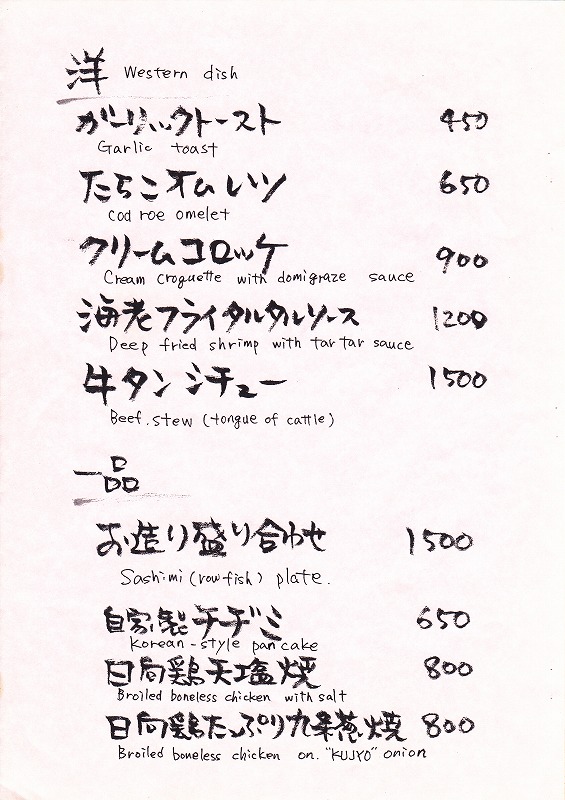 洋 Western dish
ガーリックトースト 450
Garlic toast
たらこオムレツ 650
cod roe omelet
クリームコロッケ 900
Cream croquette with domigraze sauce
海老フライタルタルソース 1200
Deep fried shrimp with tartar sauce
牛タンシチュー 1500
Beef.stew (tongue of cattle)
一品
お造り盛り合わせ 1500
Sashimi (rowfish) plate.
自家製チヂミ 650
Korean-style pancake
日向鶏天塩焼 800
Broiled boneless chicken with salt
日向鶏たっぷり九条葱焼 800
Broiled boneless chicken on. "KUJYO" onion